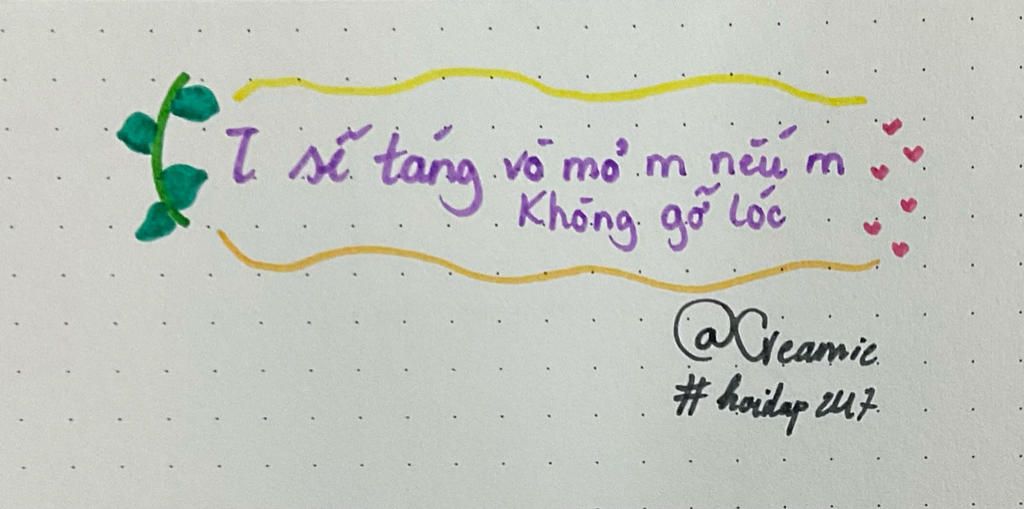 T sẽ táng vỡ mỏ m nếu m
Không gỡ lóc
@Creamie
#hoidap247